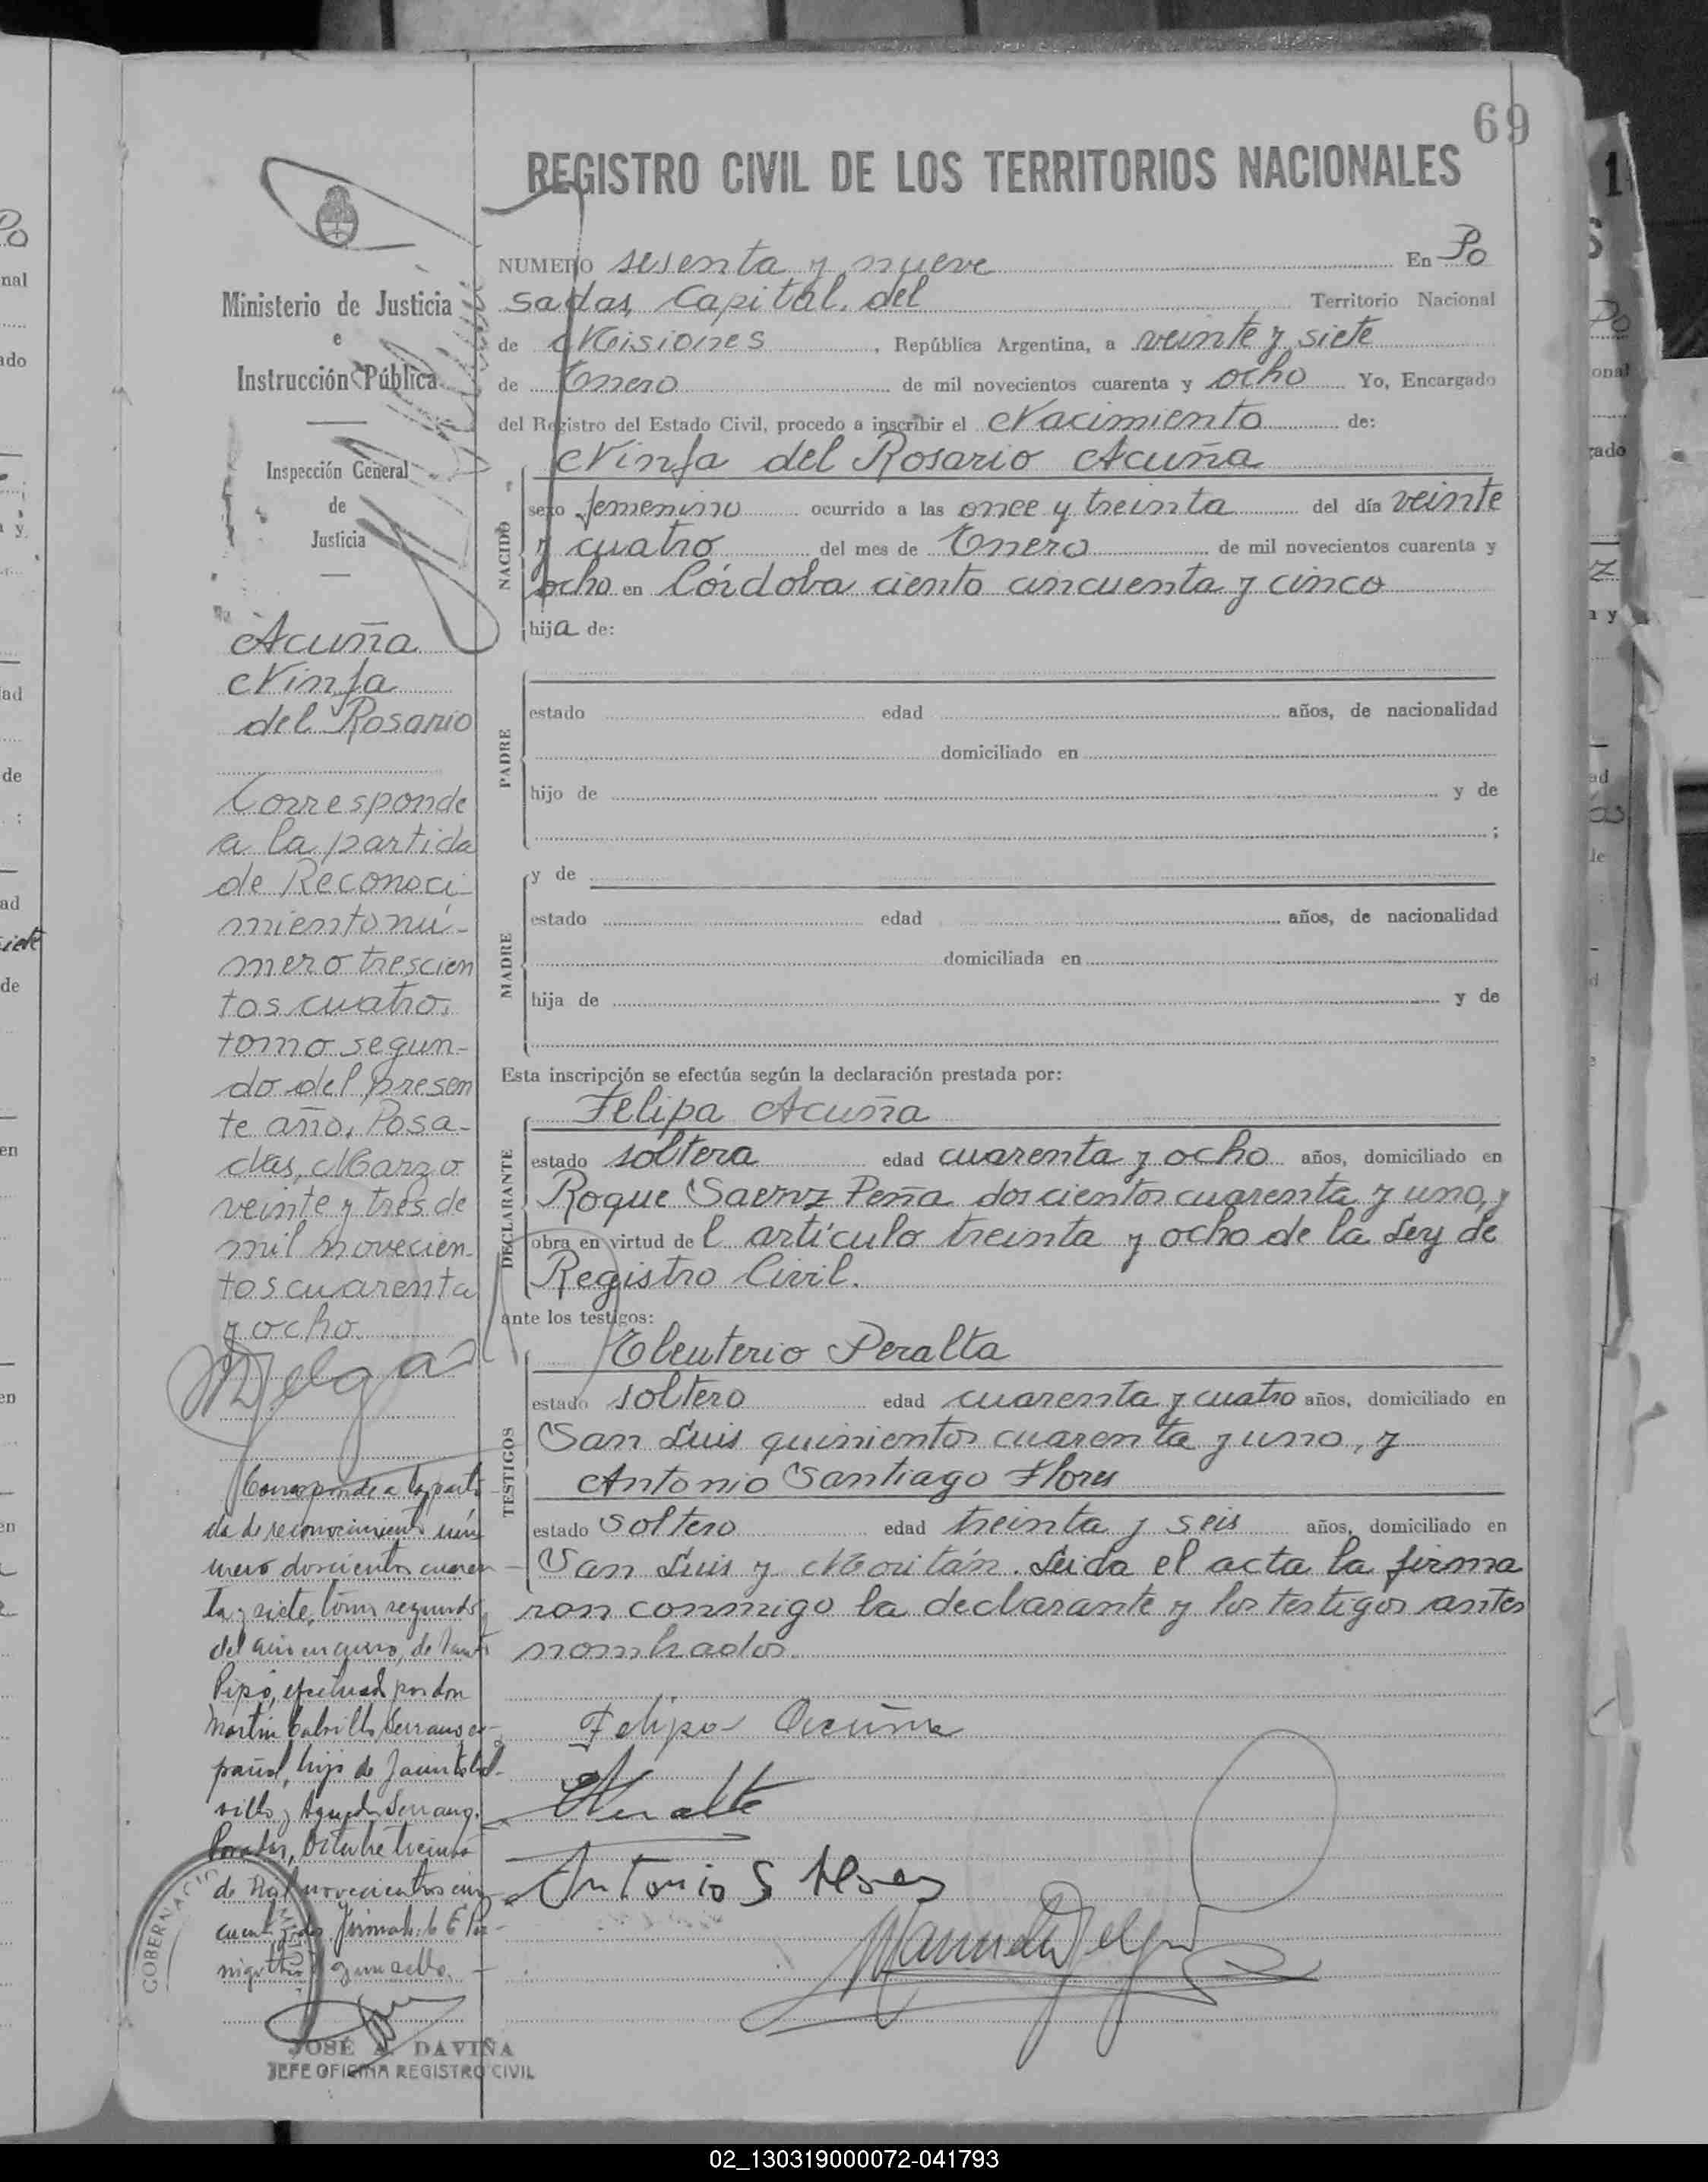 69
REGISTRO CIVIL DE LOS TERRITORIOS NACIONALES
NUMERO sesenta y nueve En Po
sadas, Capital del Territorio Nacional
de Misiones, República Argentina, a veinte y siete
de Enero de mil novecientos cuarenta y ocho Yo, Encargado
del Registro del Estado Civil, procedo a inscribir el Nacimiento de:
Ninfa del Rosario Acuña
NACIDO
sexo femenino ocurrido a las once y treinta del día veinte
y cuatro del mes de Enero de mil novecientos cuarenta y
ocho en Córdoba ciento cincuenta y cinco
hija de:
PADRE
estado edad años, de nacionalidad
domiciliado en
hijo de y de
;
MADRE
y de
estado edad años, de nacionalidad
domiciliada en
hija de y de
Esta inscripción se efectúa según la declaración prestada por:
Felipa Acuña
DECLARANTE
estado soltera edad cuarenta y ocho años, domiciliado en
Roque Saenz Peña doscientos cuarenta y uno, y
obra en virtud de l artículo treinta y ocho de la Ley de
Registro Civil.
ante los testigos:
Eleuterio Peralta
TESTIGOS
estado soltero edad cuarenta y cuatro años, domiciliado en
San Luis quinientos cuarenta y uno, y
Antonio Santiago Flores
estado soltero edad treinta y seis años, domiciliado en
San Luis y Moritán. Leida el acta la firma
ron conmigo la declarante y los testigos antes
nombrados.
Felipa Acuña
Antonio S Flores
Manuel Delga
Ministerio de Justicia
e
Instrucción Pública
Inspección General
de
Justicia
Acuña
Ninfa
del Rosario
Corresponde
a la partida
de Reconoci
miento nú-
mero trescien
tos cuatro,
tomo segun-
do del presen
te año. Posa-
das, Marzo
veinte y tres de
mil novecien
tos cuarenta
y ocho
Corresponde a la parti
da de reconocimiento nú
mero doscientos cuaren
ta y siete, tomo segundo
del año en curso, de
Pipó, efectuada por don
Martin Calvillo Serrano es-
pañol, hijo de Jacinto Cal-
villo y Agueda Serrano.
Posadas, Octubre treinta
de Mil novecientos cin
cuenta y dos.
GOBERNACIO
JOSÉ A. DAVIÑA
JEFE OFICINA REGISTRO CIVIL
02_130319000072-041793